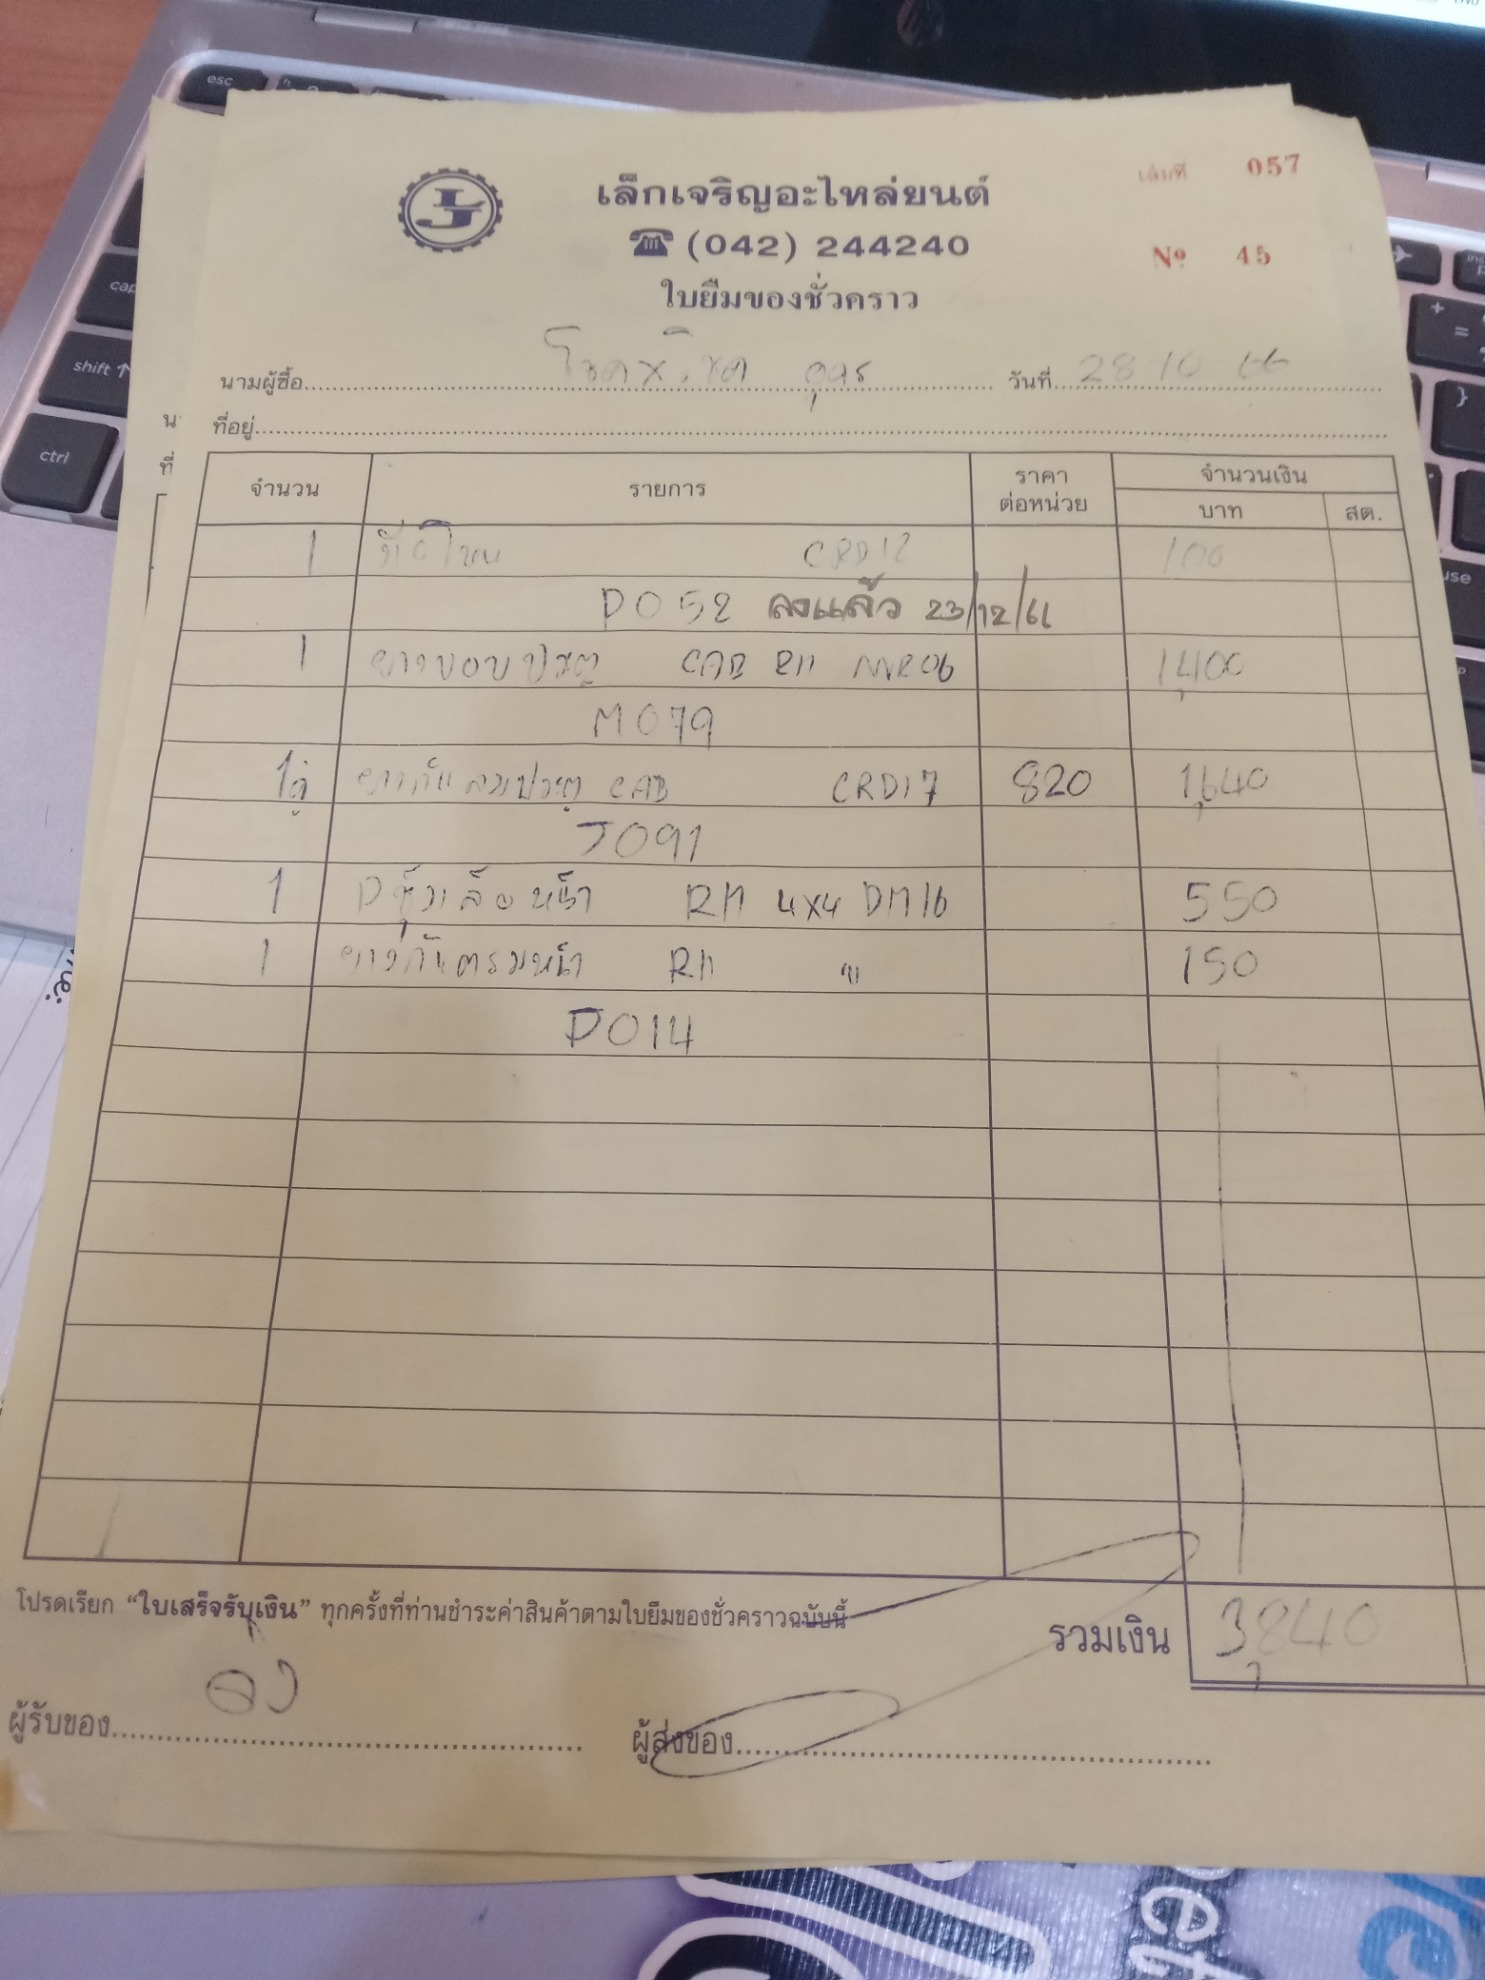 esc
เล็กเจริญอะไหล่ยนต์
เล่มที่ 057
(042) 244240
Nº 45
ใบยืมของชั่วคราว
shift
นามผู้ซื้อ อุดร วันที่ 28 10 66
ที่อยู่
ctrl
จำนวน รายการ ราคาต่อหน่วย จำนวนเงิน
บาท สต.
1 CRD12 100
D052 ลงแล้ว 23/12/66
1 ยางขอบประตู CAB RH NVR06 1,400
M079
1คู่ ยางกันลมประตู CAB CRD17 820 1,640
J091
1 ซุ้มล้อหน้า RH 4x4 DM16 550
1 หน้า RH " 150
D014
โปรดเรียก “ใบเสร็จรับเงิน” ทุกครั้งที่ท่านชำระค่าสินค้าตามใบยืมของชั่วคราวฉบับนี้
รวมเงิน 3,840
ผู้รับของ
ผู้ส่งของ